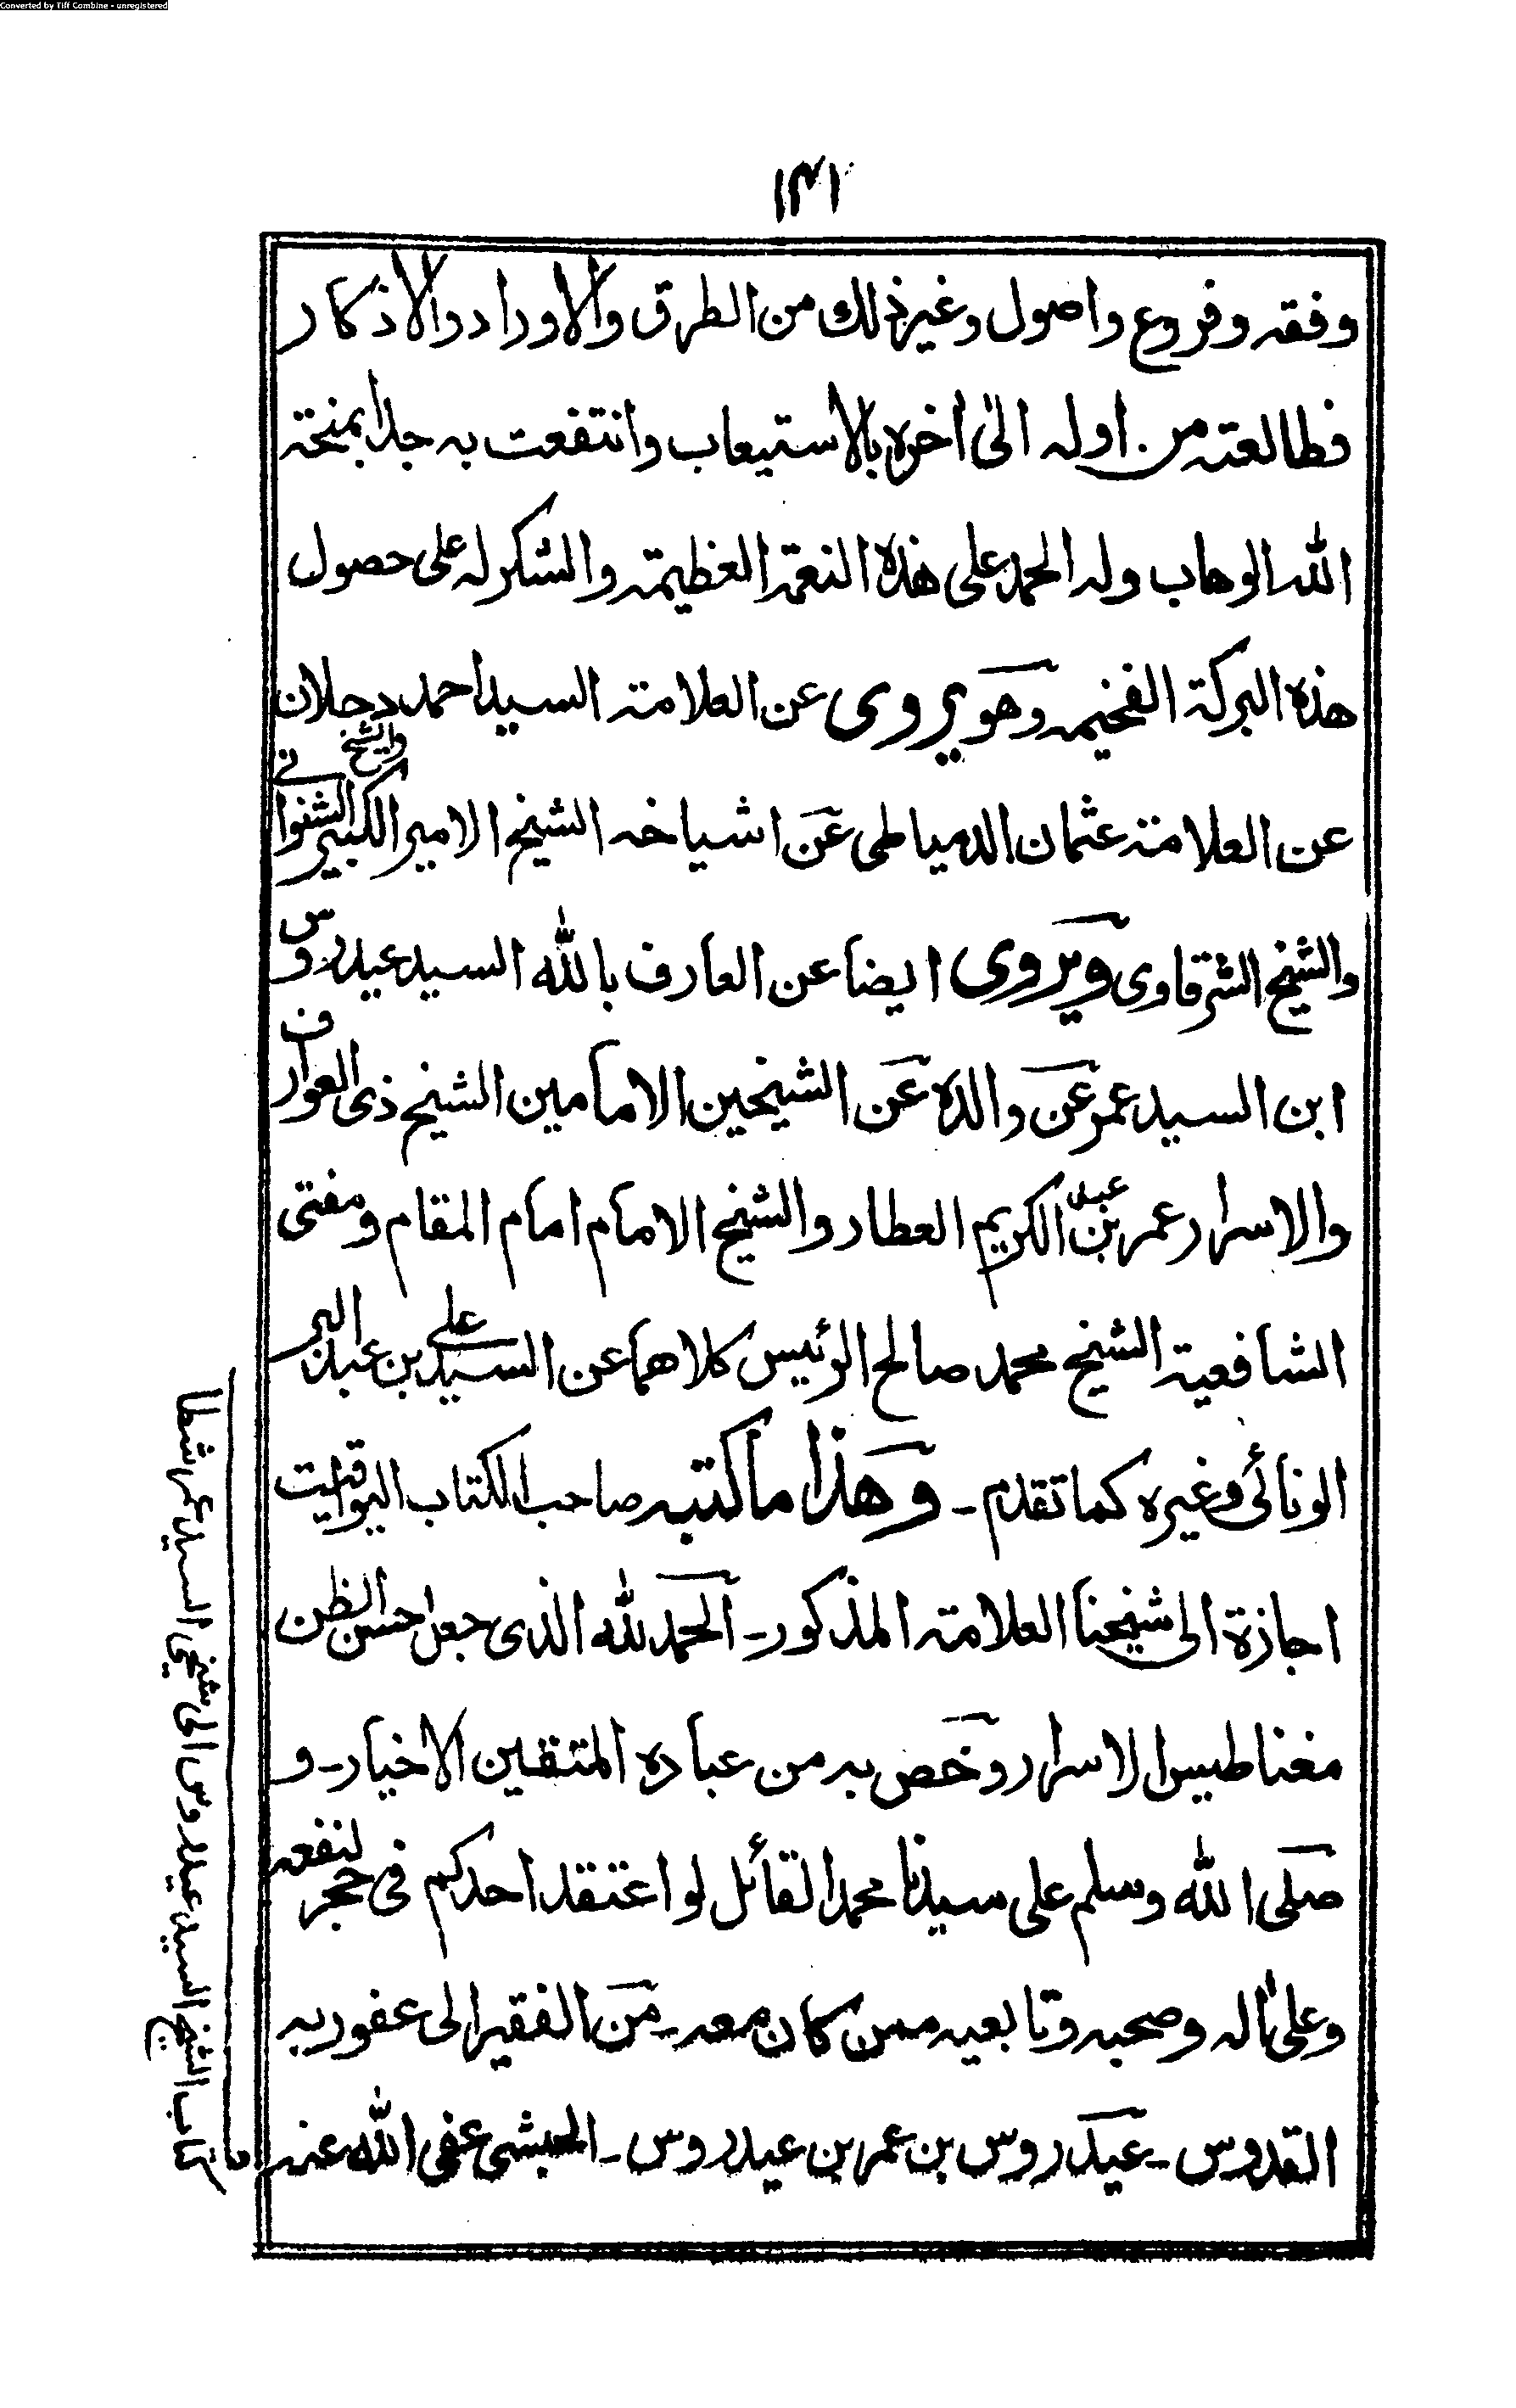 Converted by Tiff Combine - unregistered
١٣١
وفقه وفروع واصول وغير ذلك من الطرق والاوراد والاذكار
فطالعته من اوله الى اخره بالاستيعاب وانتفعت به جدا بمنحة
الله الوهاب وله الحمد على هذه النعمة العظيمة والشكر له على حصول
هذه البركة الفخيمه وهو يروى عن العلامة السيد احمد دحلان
عن العلامة عثمان الدمياطى عن اشياخه الشيخ الامير الكبير والشيخ الشنوانى
والشيخ الشرقاوى ويروى ايضا عن العارف بالله السيد عيدروس
ابن السيد عمر عن والده عن الشيخين الامامين الشيخ ذى العوارف
والاسرار عمر بن عبد الكريم العطار والشيخ الامام امام المقام ومفتى
الشافعية الشيخ محمد صالح الرئيس كلاهما عن السيد على بن عبد البر
الونائى وغيره كما تقدم - وهذا ما كتبه صاحب الكتاب اليواقيت
اجازة الى شيخنا العلامة المذكور - الحمد لله الذى جعل حسن الظن
مغناطيس الاسرار وخص به من عباده المتقين الاخيار - و
صلى الله وسلم على سيدنا محمد القائل لو اعتقد احدكم فى حجر لنفعه
وعلى اله وصحبه وتابعيه ممن كان معه - من الفقير الى عفو ربه
القدوس - عيدروس بن عمر بن عيدروس - الحبشى عفى الله عنه
كتاب الشيخ السيد عيدروس الى شيخى السيد عمر شطا